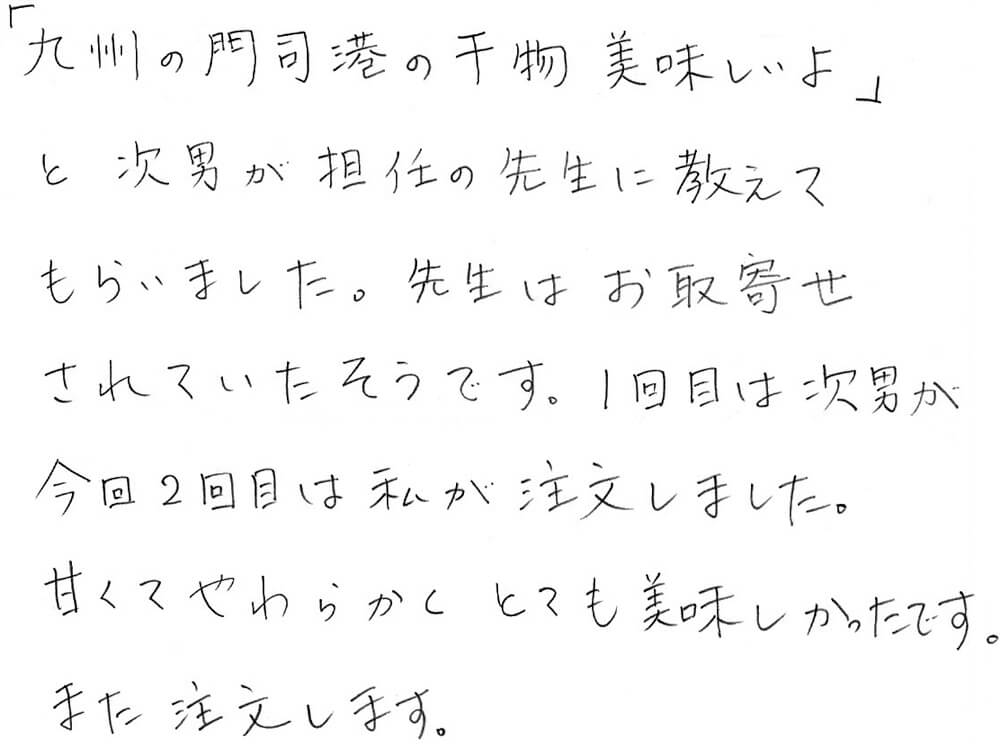 「九州の門司港の干物 美味しいよ」
と 次男が 担任の先生に教えて
もらいました。先生は お取寄せ
されていたそうです。1回目は次男が
今回2回目は私が注文しました。
甘くてやわらかく とても美味しかったです。
また注文します。